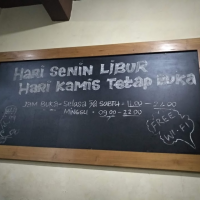 HARI SENIN LIBUR
HARI KAMIS TETAP BUKA
JAM BUKA - SELASA SD SABTU = 11.00 - 22.00
MINGGU = 09.00 - 22.00
FREE
WI-FI